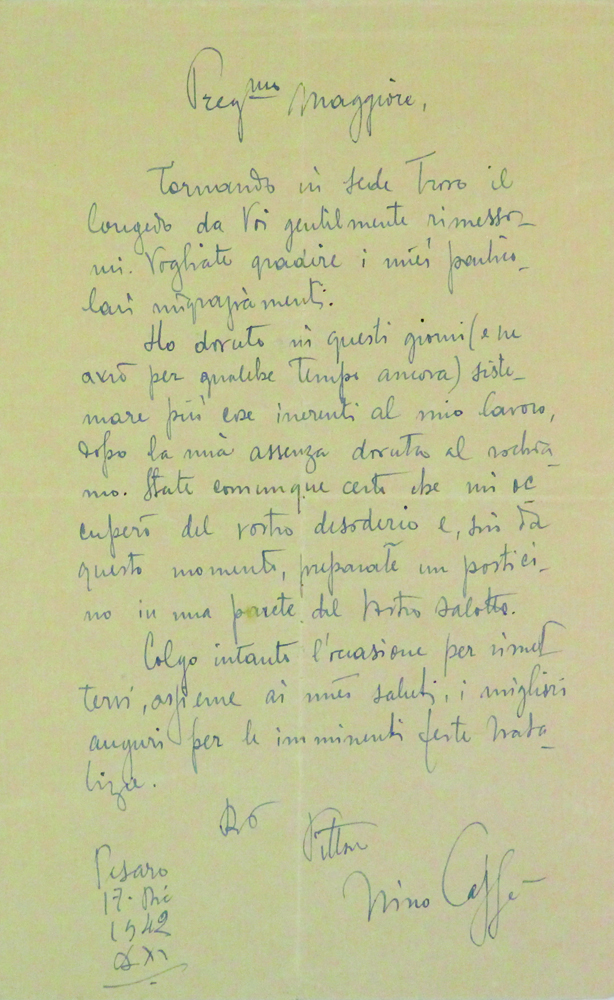 Preg.mo Maggiore,
Tornando in sede trovo il
congedo da Voi gentilmente rimesso-
mi. Vogliate gradire i miei partico-
lari ringraziamenti.
Ho dovuto in questi giorni (e ne
avrò per qualche tempo ancora) siste-
mare più cose inerenti al mio lavoro,
dopo la mia assenza dovuta al richia-
mo. State comunque certo che mi oc-
cuperò del vostro desiderio e, sin da
questo momento, preparate un postici-
no in una parete del Vostro salotto.
Colgo intanto l'occasione per rimet
tervi, assieme ai miei saluti, i migliori
auguri per le imminenti feste Nata-
lizie.
Pittore
Nino Caffè
Pesaro
17. Dic
1942
XXI